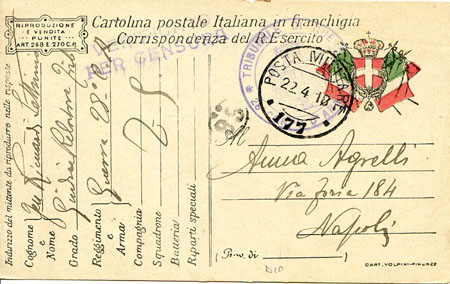 RIPRODUZIONE
E VENDITA
PUNITE
ART. 268 E 270 C.P.
Cartolina postale Italiana in franchigia
Corrispondenza del R. Esercito
PER CENSURA
TRIBU
POSTA MILITARE
22.4.18
* 177 *
Indirizzo del mittente da riprodurre nelle risposte
Cognome
e
Nome
Grado
Reggimento
e
Arma
Guerra 28°
Compagnia
Squadrone
Batteria
Riparti speciali
M
Anna Agrelli
Via Foria 184
Napoli
(Prov. di
)
CART. VOLPINI-FIRENZE